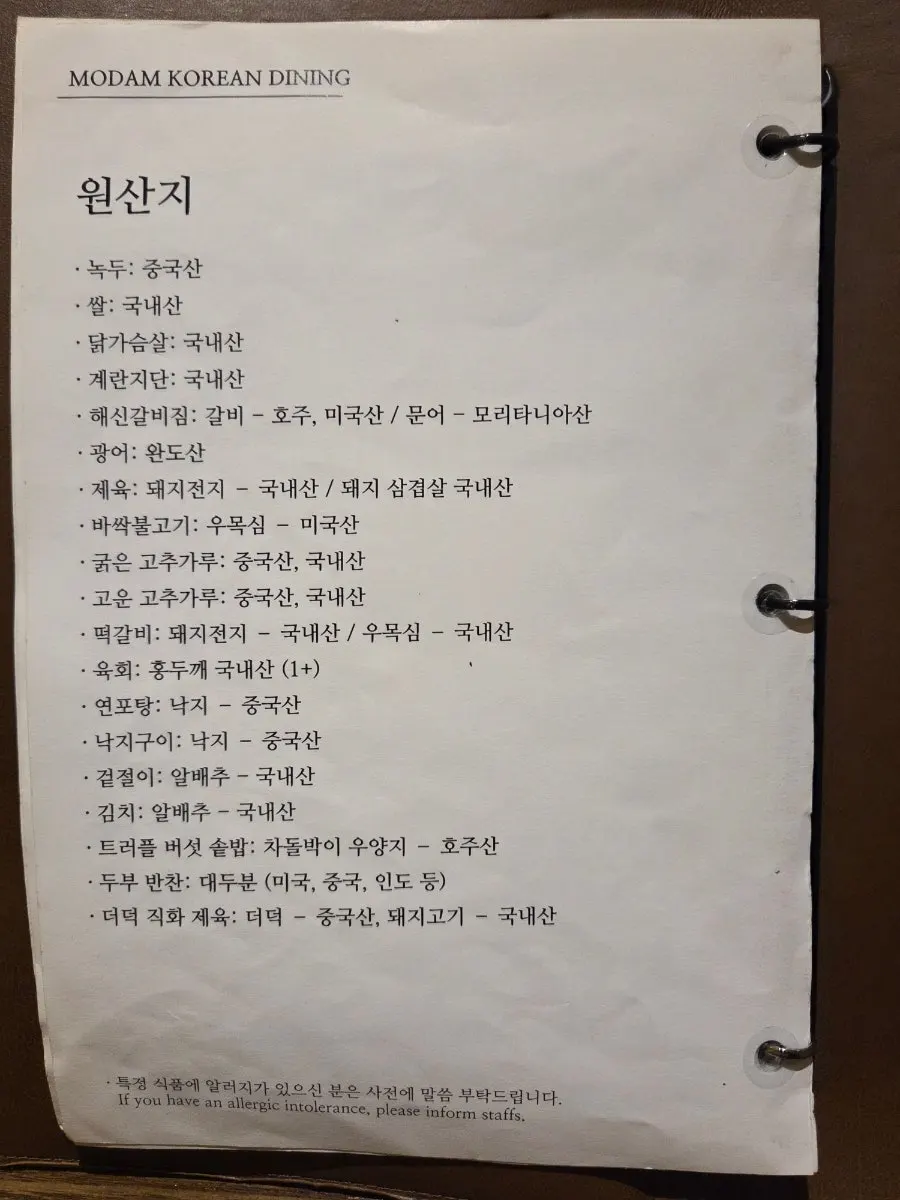 MODAM KOREAN DINING
원산지
· 녹두: 중국산
· 쌀: 국내산
· 닭가슴살: 국내산
· 계란지단: 국내산
· 해신갈비찜: 갈비 – 호주, 미국산 / 문어 – 모리타니아산
· 광어: 완도산
· 제육: 돼지전지 – 국내산 / 돼지 삼겹살 국내산
· 바싹불고기: 우목심 – 미국산
· 굵은 고추가루: 중국산, 국내산
· 고운 고추가루: 중국산, 국내산
· 떡갈비: 돼지전지 – 국내산 / 우목심 – 국내산
· 육회: 홍두깨 국내산 (1+)
· 연포탕: 낙지 – 중국산
· 낙지구이: 낙지 – 중국산
· 겉절이: 알배추 – 국내산
· 김치: 알배추 – 국내산
· 트러플 버섯 솥밥: 차돌박이 우양지 – 호주산
· 두부 반찬: 대두분 (미국, 중국, 인도 등)
· 더덕 직화 제육: 더덕 – 중국산, 돼지고기 – 국내산
· 특정 식품에 알러지가 있으신 분은 사전에 말씀 부탁드립니다.
If you have an allergic intolerance, please inform staffs.